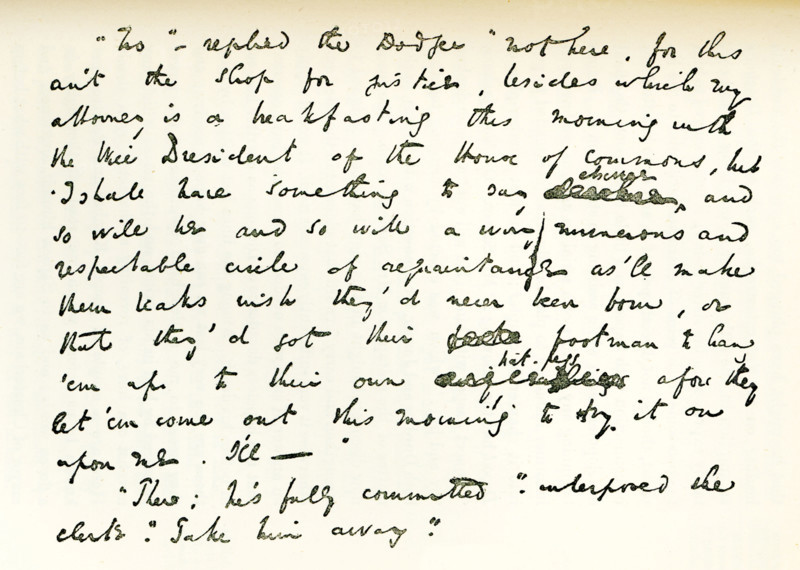 "No" – replied the Dodger "not here, for this
ain't the shop for justice, besides which my
attorney is a breakfasting this morning with
the Wice President of the House of Commons, but
I shall have something to say elsewer, and
so will he and so will a wery numerous and
respectable circle of acquaintance as'll make
them beaks wish they'd never been born, or
that they'd got their footman to hang
'em up to their own hat-pegs afore they
let 'em come out this morning to try it on
upon me. I'll — "
"There; he's fully committed". interposed the
clerk". Take him away".